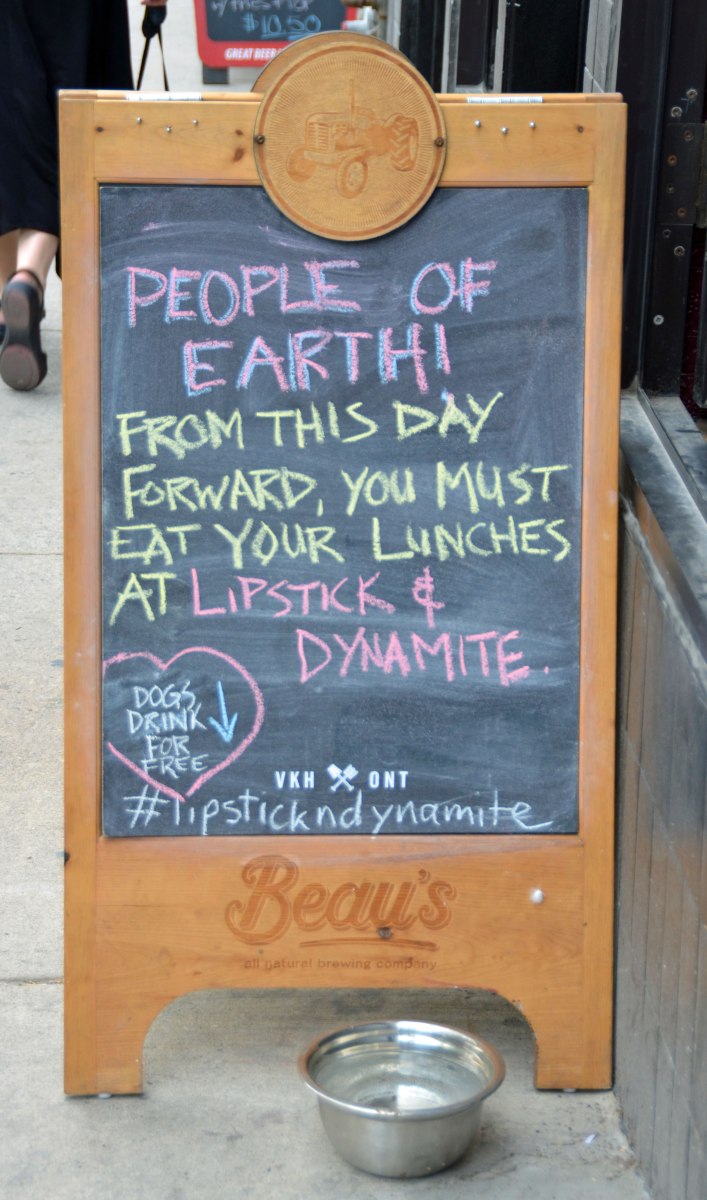 $10.50
GREAT BEER
PEOPLE OF
EARTH!
FROM THIS DAY
FORWARD, YOU MUST
EAT YOUR LUNCHES
AT LIPSTICK &
DYNAMITE.
DOGS
DRINK
FOR
FREE
VKH ONT
#lipstickndynamite
Beau's
all natural brewing company